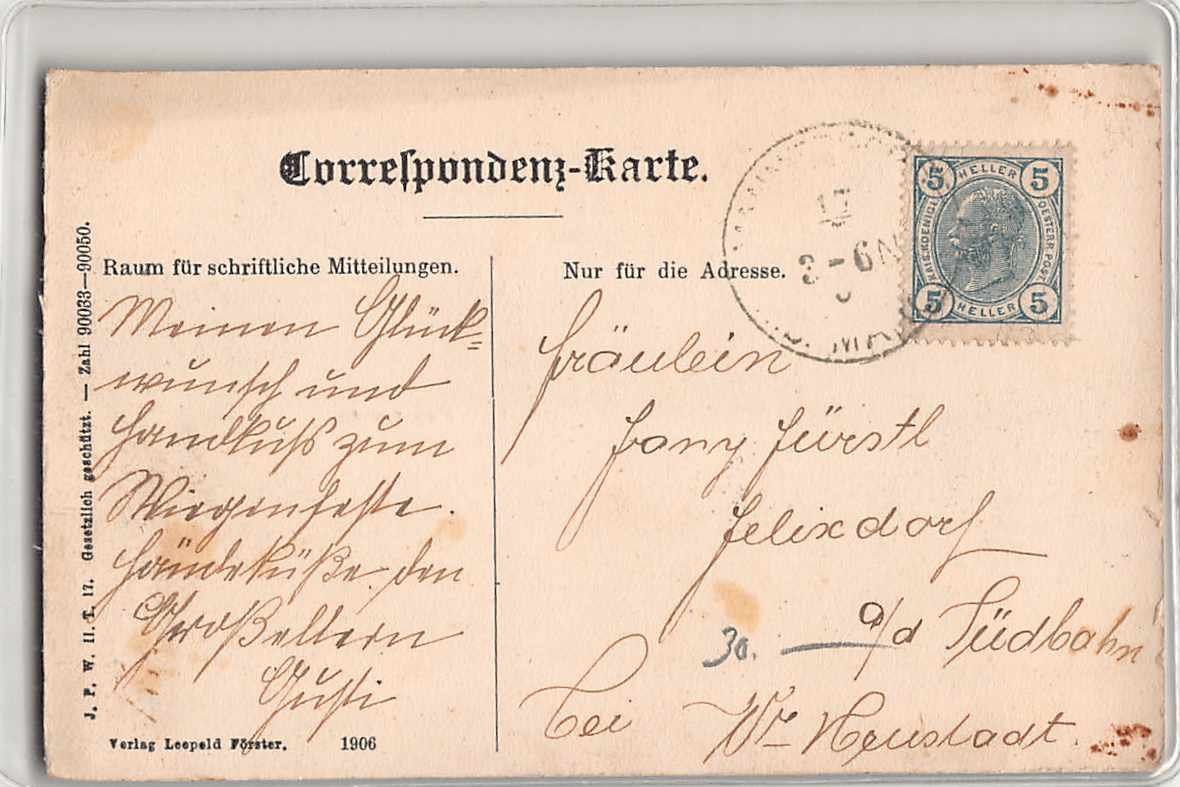 Correſpondenz-Karte.
Raum für schriftliche Mitteilungen.
Meinen Glück-
wunsch und
Handkuß zum
Wiegenfeste.
Händeküße den
Großeltern
Gusti
Verlag Leopold Förster. 1906
J. P. W. II. T. 17. Gesetzlich geschützt. — Zahl 90033—90050.
Nur für die Adresse.
Fräulein
Fany Fürstl
Felixdorf
a/d Südbahn
bei Wr Neustadt.
30.
17
3-6N
5 HELLER 5
KAIS. KOENIGL. OESTERR. POST
5 HELLER 5